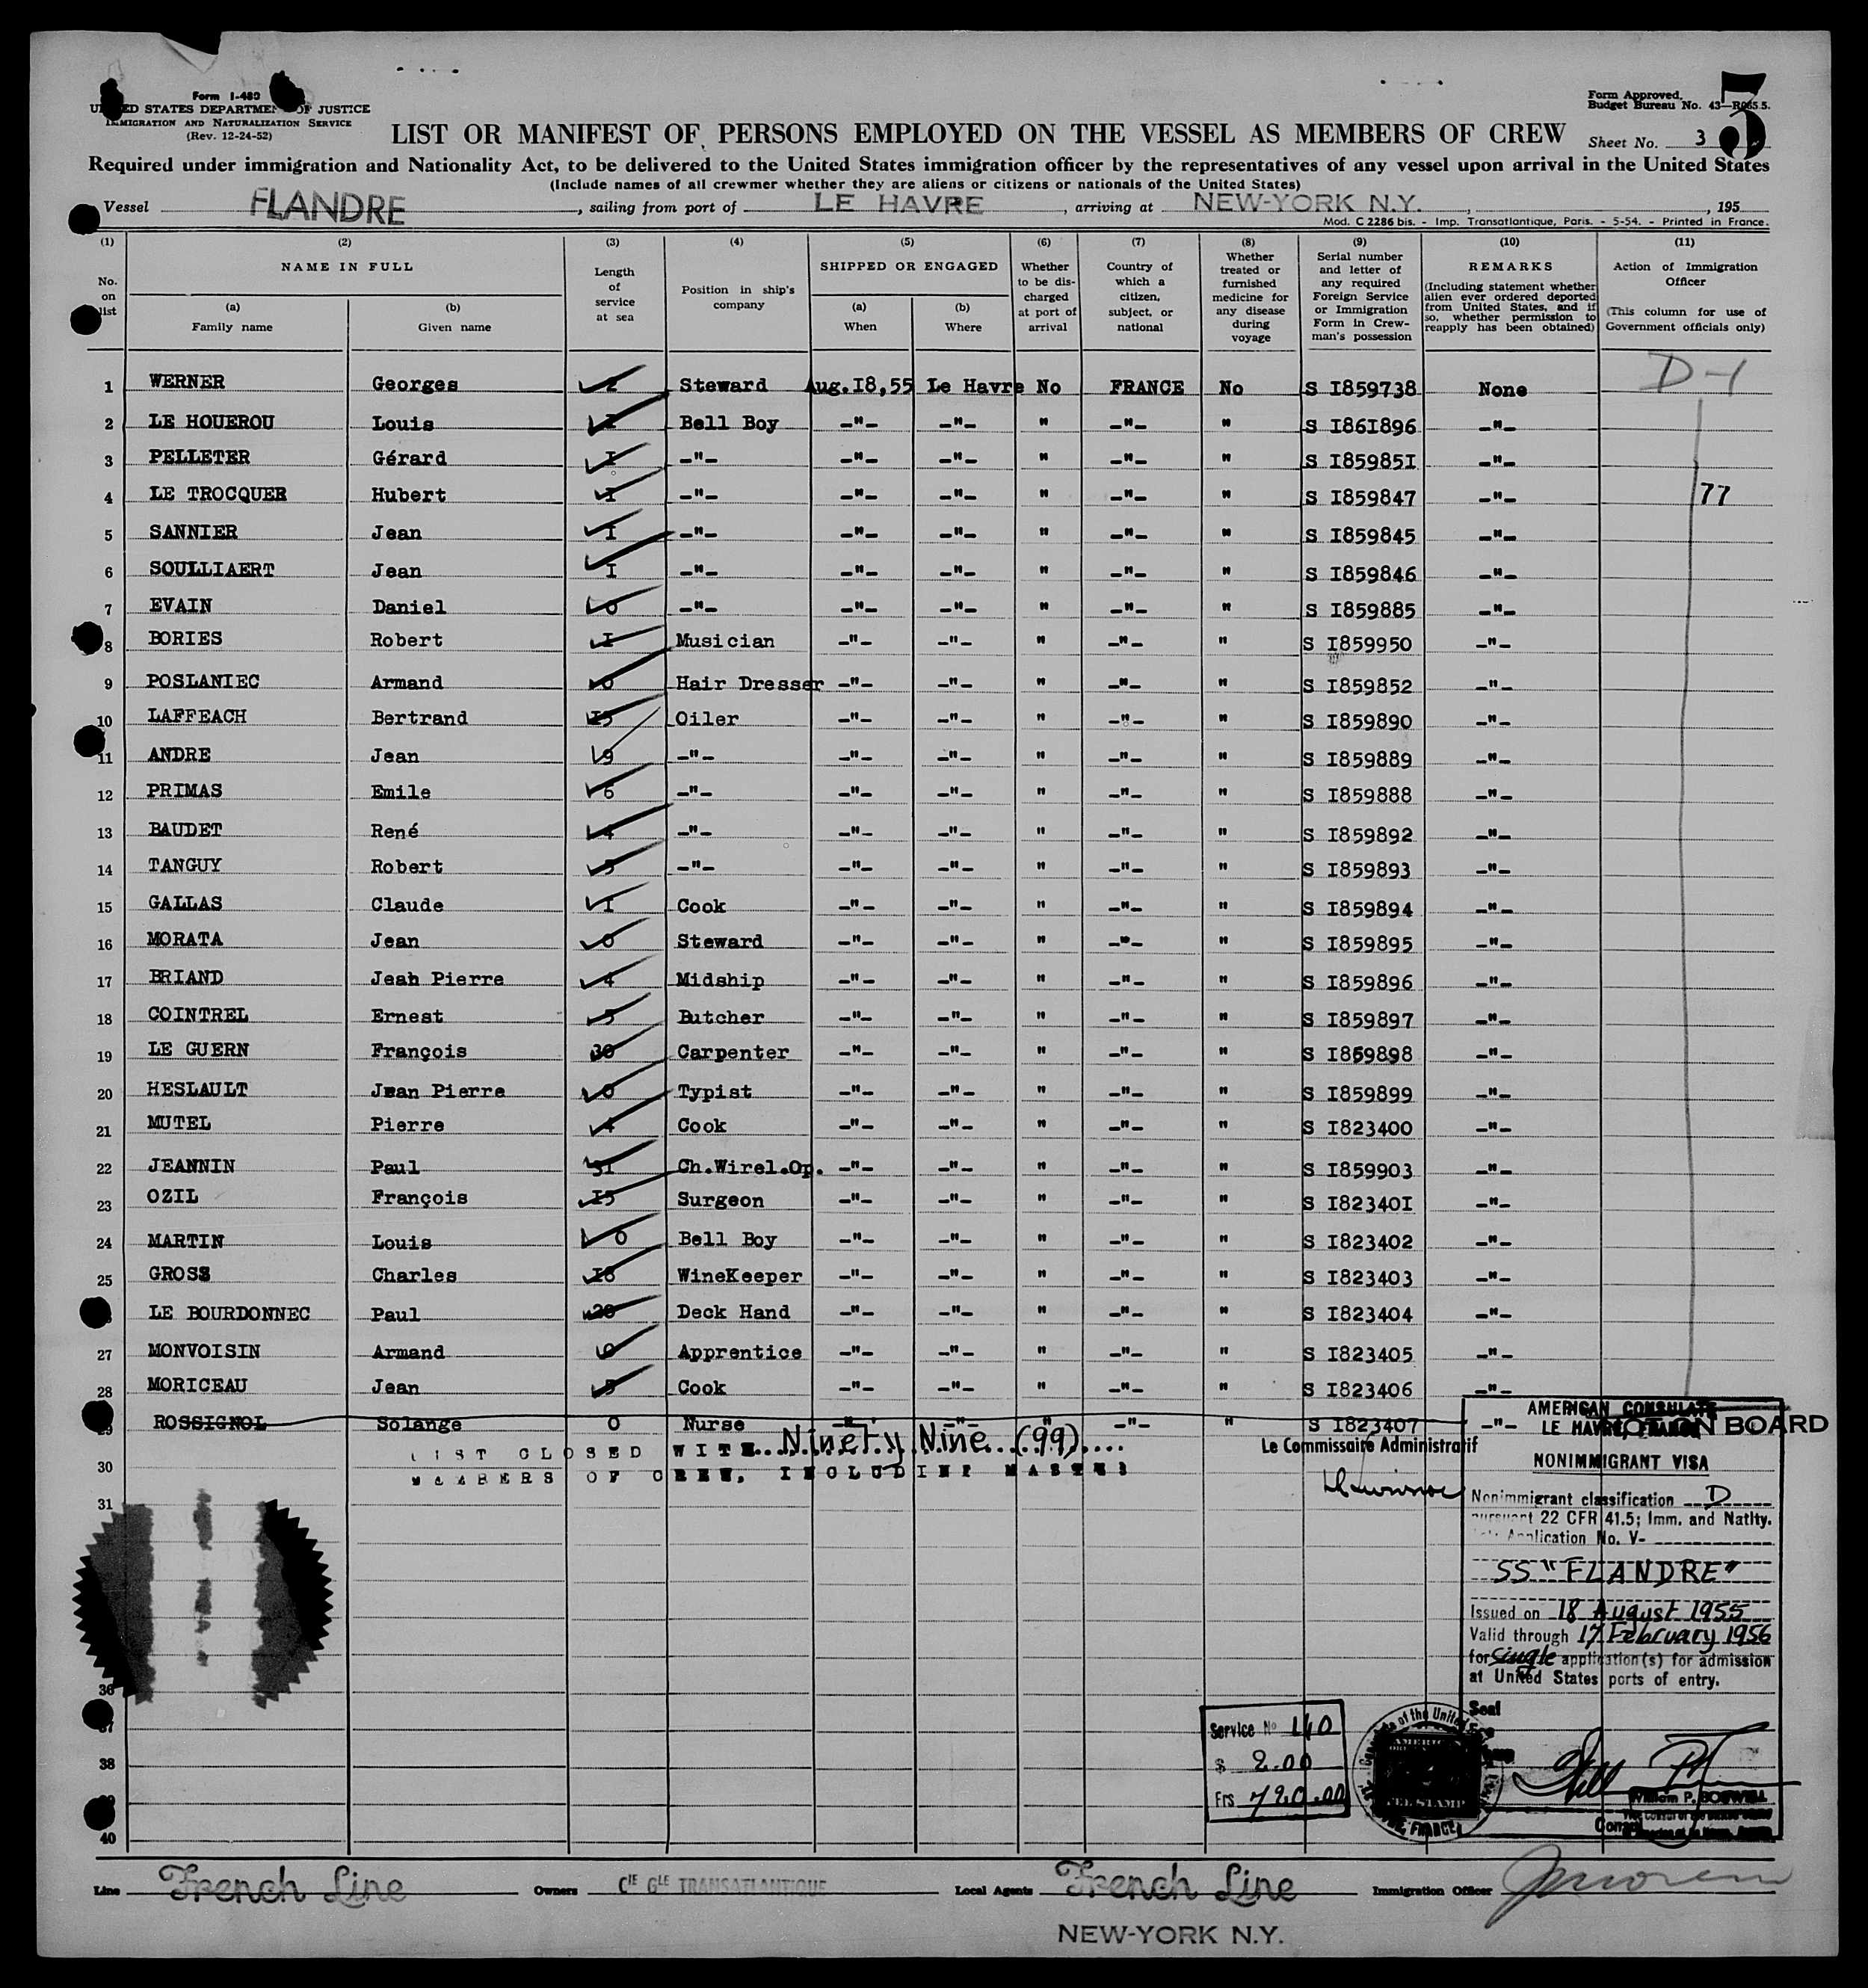 Form I-480
UNITED STATES DEPARTMENT OF JUSTICE
IMMIGRATION AND NATURALIZATION SERVICE
(Rev. 12-24-52)
Form Approved.
Budget Bureau No. 43—R065.5.
5
LIST OR MANIFEST OF PERSONS EMPLOYED ON THE VESSEL AS MEMBERS OF CREW
Sheet No. 3
Required under immigration and Nationality Act, to be delivered to the United States immigration officer by the representatives of any vessel upon arrival in the United States
(Include names of all crewmer whether they are aliens or citizens or nationals of the United States)
Vessel FLANDRE, sailing from port of LE HAVRE, arriving at NEW-YORK N.Y., , 195
Mod. C 2286 bis. - Imp. Transatlantique, Paris. - 5-54. - Printed in France.
(1) (2) (3) (4) (5) (6) (7) (8) (9) (10) (11)
No. on list
NAME IN FULL
(a) Family name
(b) Given name
Length of service at sea
Position in ship's company
SHIPPED OR ENGAGED
(a) When
(b) Where
Whether to be discharged at port of arrival
Country of which a citizen, subject, or national
Whether treated or furnished medicine for any disease during voyage
Serial number and letter of any required Foreign Service or Immigration Form in Crewman's possession
REMARKS
(Including statement whether alien ever ordered deported from United States, and if so, whether permission to reapply has been obtained)
Action of Immigration Officer
(This column for use of Government officials only)
1 WERNER Georges 2 Steward Aug.I8,55 Le Havre No FRANCE No S I859738 None D-1
2 LE HOUEROU Louis I Bell Boy -"- -"- " -"- " S I86I896 -"-
3 PELLETER Gérard I -"- -"- -"- " -"- " S I85985I -"-
4 LE TROCQUER Hubert I -"- -"- -"- " -"- " S I859847 -"- 77
5 SANNIER Jean I -"- -"- -"- " -"- " S I859845 -"-
6 SOULLIAERT Jean I -"- -"- -"- " -"- " S I859846 -"-
7 EVAIN Daniel 0 -"- -"- -"- " -"- " S I859885 -"-
8 BORIES Robert I Musician -"- -"- " -"- " S I859950 -"-
9 POSLANIEC Armand 0 Hair Dresser -"- -"- " -"- " S I859852 -"-
10 LAFFEACH Bertrand I5 Oiler -"- -"- " -"- " S I859890 -"-
11 ANDRE Jean 9 -"- -"- -"- " -"- " S I859889 -"-
12 PRIMAS Emile 6 -"- -"- -"- " -"- " S I859888 -"-
13 BAUDET René 4 -"- -"- -"- " -"- " S I859892 -"-
14 TANGUY Robert 5 -"- -"- -"- " -"- " S I859893 -"-
15 GALLAS Claude I Cook -"- -"- " -"- " S I859894 -"-
16 MORATA Jean 0 Steward -"- -"- " -"- " S I859895 -"-
17 BRIAND Jean Pierre 4 Midship -"- -"- " -"- " S I859896 -"-
18 COINTREL Ernest 5 Butcher -"- -"- " -"- " S I859897 -"-
19 LE GUERN François 30 Carpenter -"- -"- " -"- " S I859898 -"-
20 HESLAULT Jwan Pierre 0 Typist -"- -"- " -"- " S I859899 -"-
21 MUTEL Pierre 4 Cook -"- -"- " -"- " S I823400 -"-
22 JEANNIN Paul 31 Ch.Wirel.Op. -"- -"- " -"- " S I859903 -"-
23 OZIL François I5 Surgeon -"- -"- " -"- " S I82340I -"-
24 MARTIN Louis 0 Bell Boy -"- -"- " -"- " S I823402 -"-
25 GROSS Charles I8 WineKeeper -"- -"- " -"- " S I823403 -"-
LE BOURDONNEC Paul 20 Deck Hand -"- -"- " -"- " S I823404 -"-
27 MONVOISIN Armand 0 Apprentice -"- -"- " -"- " S I823405 -"-
28 MORICEAU Jean 5 Cook -"- -"- " -"- " S I823406 -"-
29 ROSSIGNOL Solange 0 Nurse -"- -"- " -"- " S I823407 -"- NOT ON BOARD
LIST CLOSED WITH...Ninety Nine...(99)....
30 MEMBERS OF CREW, INCLUDING MASTER
31
36
37
38
40
Le Commissaire Administratif
AMERICAN CONSULATE
LE HAVRE, FRANCE
NONIMMIGRANT VISA
Nonimmigrant classification D
pursuant 22 CFR 41.5; Imm. and Natlty.
Application No. V-
SS "FLANDRE"
Issued on 18 August 1955
Valid through 17 February 1956
for single application(s) for admission
at United States ports of entry.
Seal
William P. BOSWELL
Consul
Service No 140
$ 2.00
Frs 720.00
Line French Line Owners CIE GLE TRANSATLANTIQUE Local Agents French Line Immigration Officer
NEW-YORK N.Y.